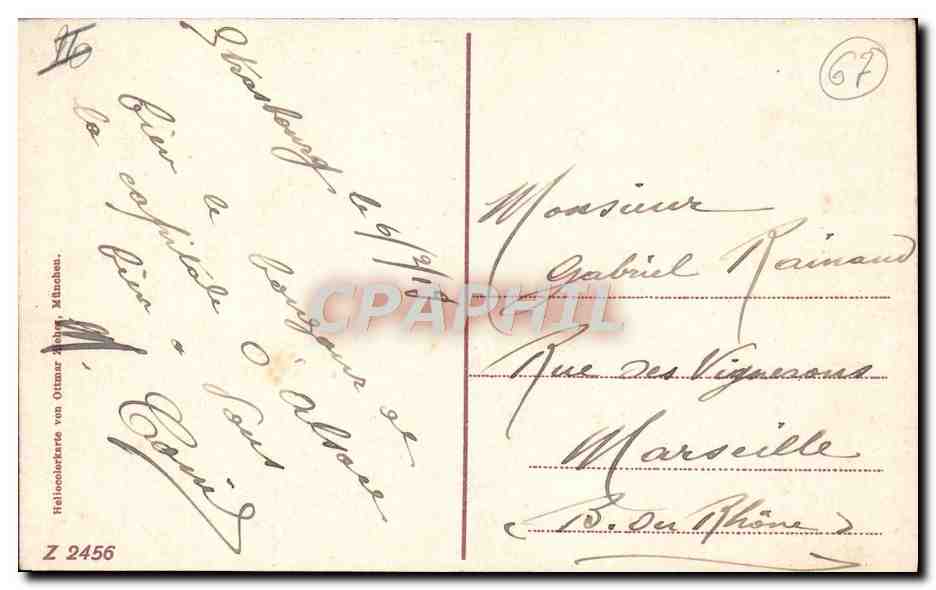 Strasbourg le 6/2/19
Bien le bonjour de
la capitale d'Alsace
bien à vous
M.
Heliocolorkarte von Ottmar Zieher, München.
Z 2456
67
Monsieur
Gabriel Rainaud
Rue des Vignerons
Marseille
B. du Rhône
CPAPHIL